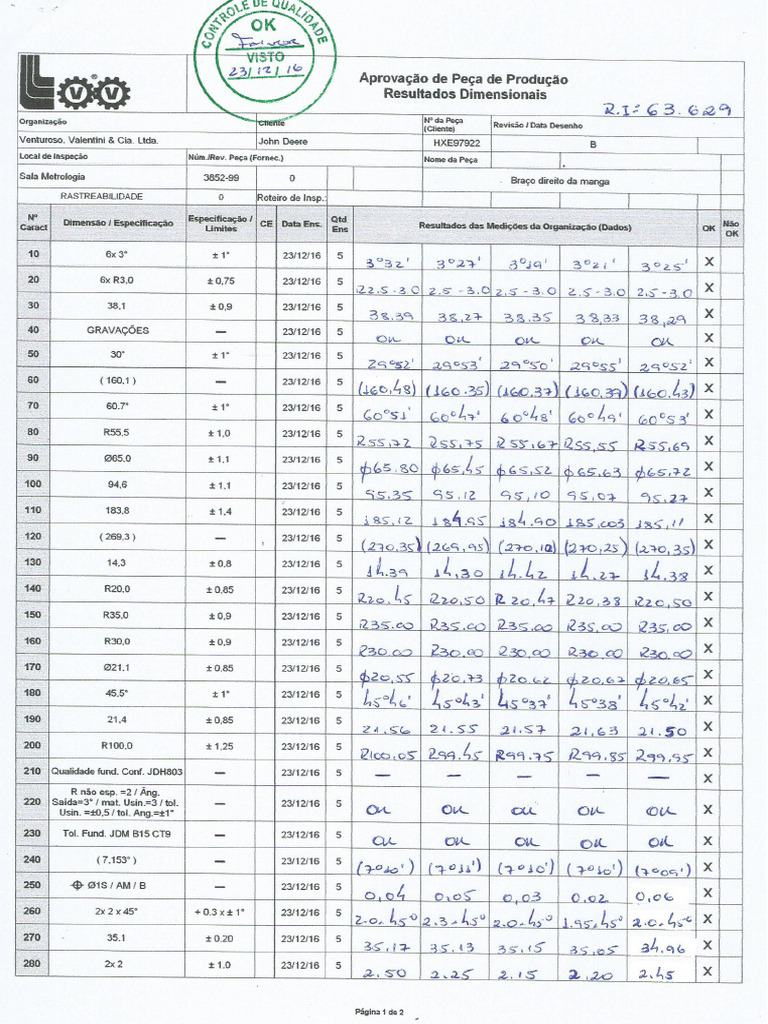 CONTROLE DE QUALIDADE
OK
VISTO
23/12/16
VV
Aprovação de Peça de Produção
Resultados Dimensionais
R.I: 63.629
Organização Cliente Nº da Peça (Cliente) Revisão / Data Desenho
Venturoso, Valentini & Cia. Ltda. John Deere HXE97922 B
Local de Inspeção Núm./Rev. Peça (Fornec.) Nome da Peça
Sala Metrologia 3852-99 0 Braço direito da manga
RASTREABILIDADE 0 Roteiro de Insp.:
Nº Caract Dimensão / Especificação Especificação / Limites CE Data Ens. Qtd Ens Resultados das Medições da Organização (Dados) OK Não OK
10 6x 3° ± 1° 23/12/16 5 3°32' 3°27' 3°19' 3°21' 3°25' X
20 6x R3,0 ± 0,75 23/12/16 5 22.5-3.0 2.5-3.0 2.5-3.0 2.5-3.0 2.5-3.0 X
30 38,1 ± 0,9 23/12/16 5 38.39 38,27 38.35 38,33 38,29 X
40 GRAVAÇÕES — 23/12/16 5 OK OK OK OK OK X
50 30° ± 1° 23/12/16 5 29°52' 29°53' 29°50' 29°55' 29°52' X
60 ( 160,1 ) — 23/12/16 5 (160,48) (160.35) (160,37) (160,39) (160.43) X
70 60.7° ± 1° 23/12/16 5 60°51' 60°47' 60°48' 60°49' 60°53' X
80 R55,5 ± 1,0 23/12/16 5 R55,72 R55,75 R55,67 R55,55 R55,69 X
90 Ø65,0 ± 1,1 23/12/16 5 φ65.80 φ65,45 φ65,52 φ65.63 φ65,72 X
100 94,6 ± 1,1 23/12/16 5 95.35 95,12 95,10 95,07 95.27 X
110 183,8 ± 1,4 23/12/16 5 185,12 184,95 184.90 185,003 185,11 X
120 ( 269,3 ) — 23/12/16 5 (270.35) (269,95) (270,10) (270,25) (270,35) X
130 14,3 ± 0,8 23/12/16 5 14.39 14,30 14.42 14.27 14,38 X
140 R20,0 ± 0,85 23/12/16 5 R20.45 R20,50 R20,47 R20,38 R20,50 X
150 R35,0 ± 0,9 23/12/16 5 R35.00 R35.00 R35.00 R35,00 R35,00 X
160 R30,0 ± 0,9 23/12/16 5 R30.00 R30.00 R30.00 R30.00 R30.00 X
170 Ø21.1 ± 0.85 23/12/16 5 φ20,55 φ20.73 φ20.62 φ20,67 φ20,65 X
180 45,5° ± 1° 23/12/16 5 45°46' 45°43' 45°37' 45°38' 45°42' X
190 21,4 ± 0,85 23/12/16 5 21.56 21.55 21.57 21,63 21.50 X
200 R100,0 ± 1,25 23/12/16 5 R100.05 R99.45 R99.75 R99.85 R99,95 X
210 Qualidade fund. Conf. JDH803 — 23/12/16 5 — — — — — X
R não esp. =2 / Âng.
220 Saída=3° / mat. Usin.=3 / tol. — 23/12/16 5 OK OK OK OK OK X
Usin. =±0,5 / tol. Ang.=±1°
230 Tol. Fund. JDM B15 CT9 — 23/12/16 5 OK OK OK OK OK X
240 ( 7.153° ) — 23/12/16 5 (7°10') (7°11') (7°10') (7°10') (7°09') X
250 ⌖ Ø1S / AM / B — 23/12/16 5 0,04 0,05 0,03 0.02 0,06 X
260 2x 2 x 45° + 0.3 x ± 1° 23/12/16 5 2.0.45° 2.3.45° 2.0.45° 1.95.45° 2.0.45° X
270 35.1 ± 0.20 23/12/16 5 35,17 35.13 35,15 35,05 34.96 X
280 2x 2 ± 1.0 23/12/16 5 2.50 2.25 2.15 2.20 2.45 X
Página 1 de 2